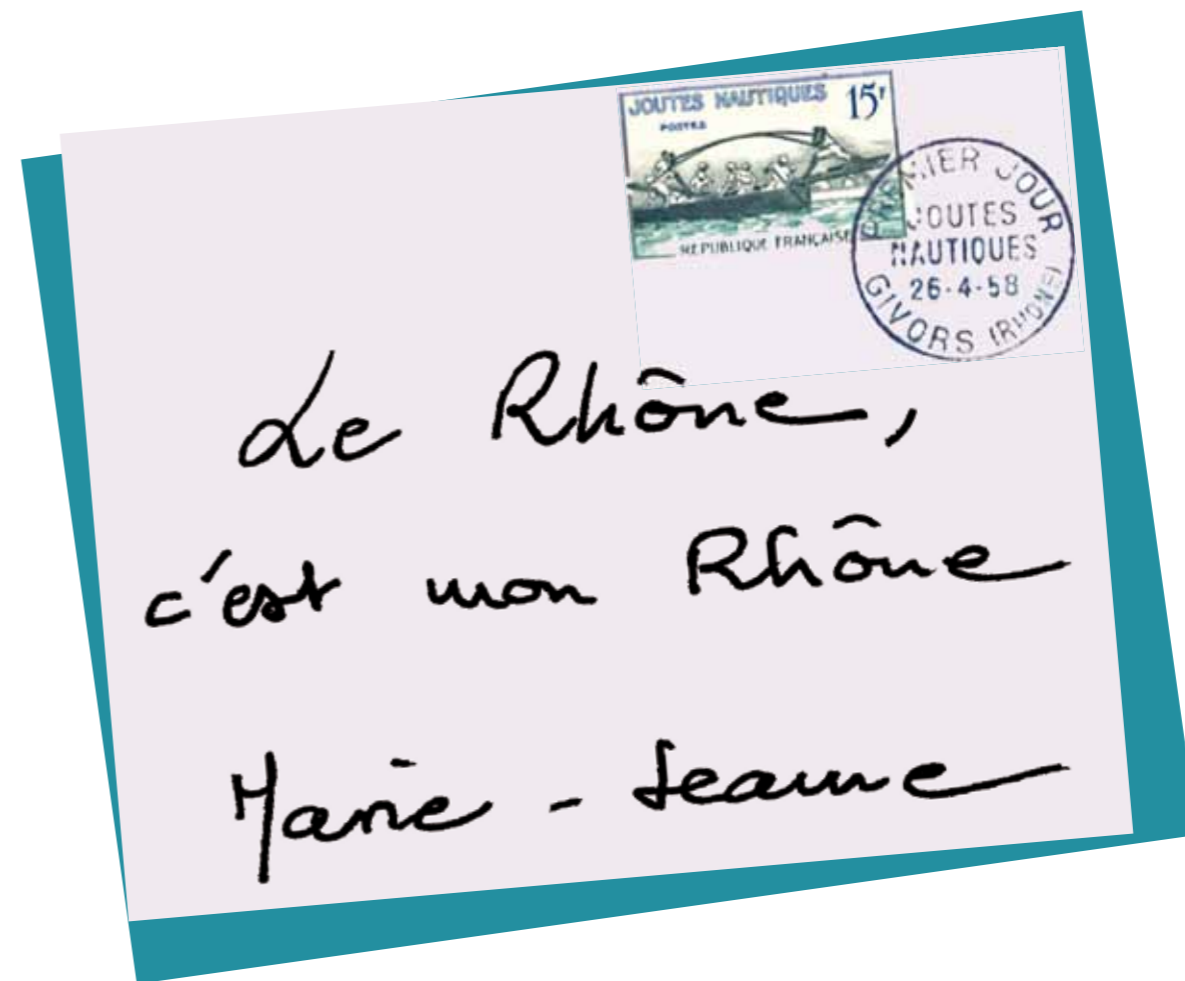 JOUTES NAUTIQUES 15F
POSTES
REPUBLIQUE FRANÇAISE
PREMIER JOUR
JOUTES
NAUTIQUES
26-4-58
GIVORS (RHONE)
Le Rhône,
c'est mon Rhône
Marie-Jeanne